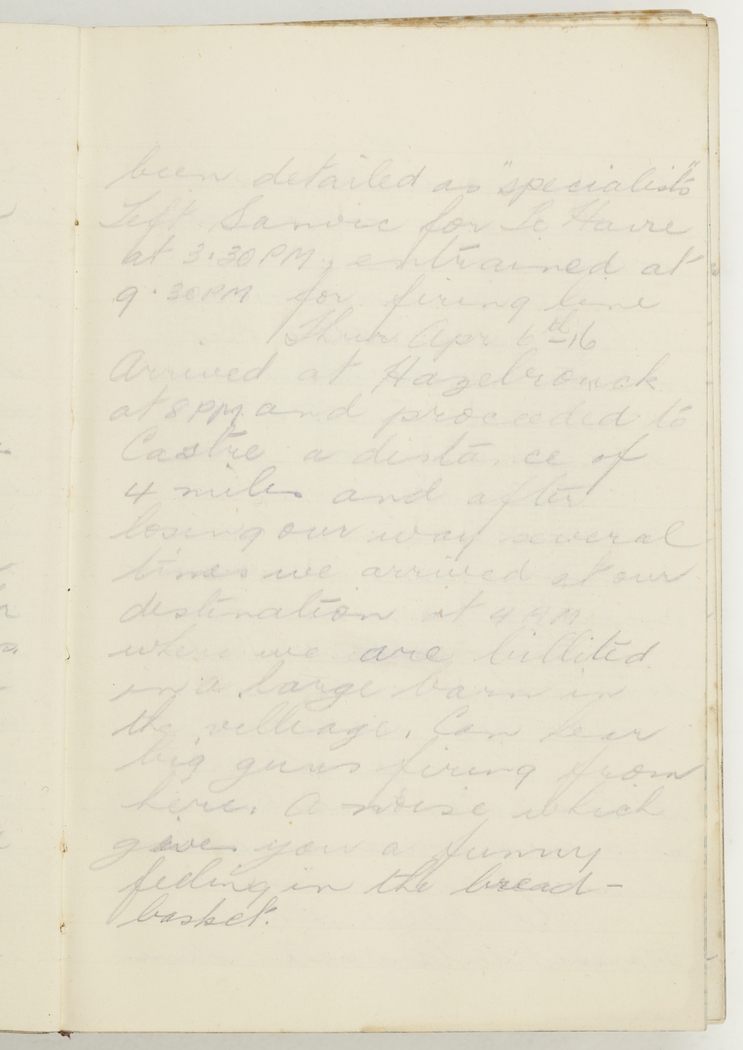 been detailed as "specialists"
Left Sanvic for Le Havre
at 3.30PM, entrained at
9.30PM for firing line
Thur Apr 6th-16
Arrived at Hazelrouck
at 8PM and proceeded to
Castre a distance of
4 miles and after
losing our way several
times we arrived at our
destination at 4AM
where we are billited
in a large barn in
the villiage. Can hear
big guns firing from
here. A noise which
gives you a funny
feeling in the bread-
basket.